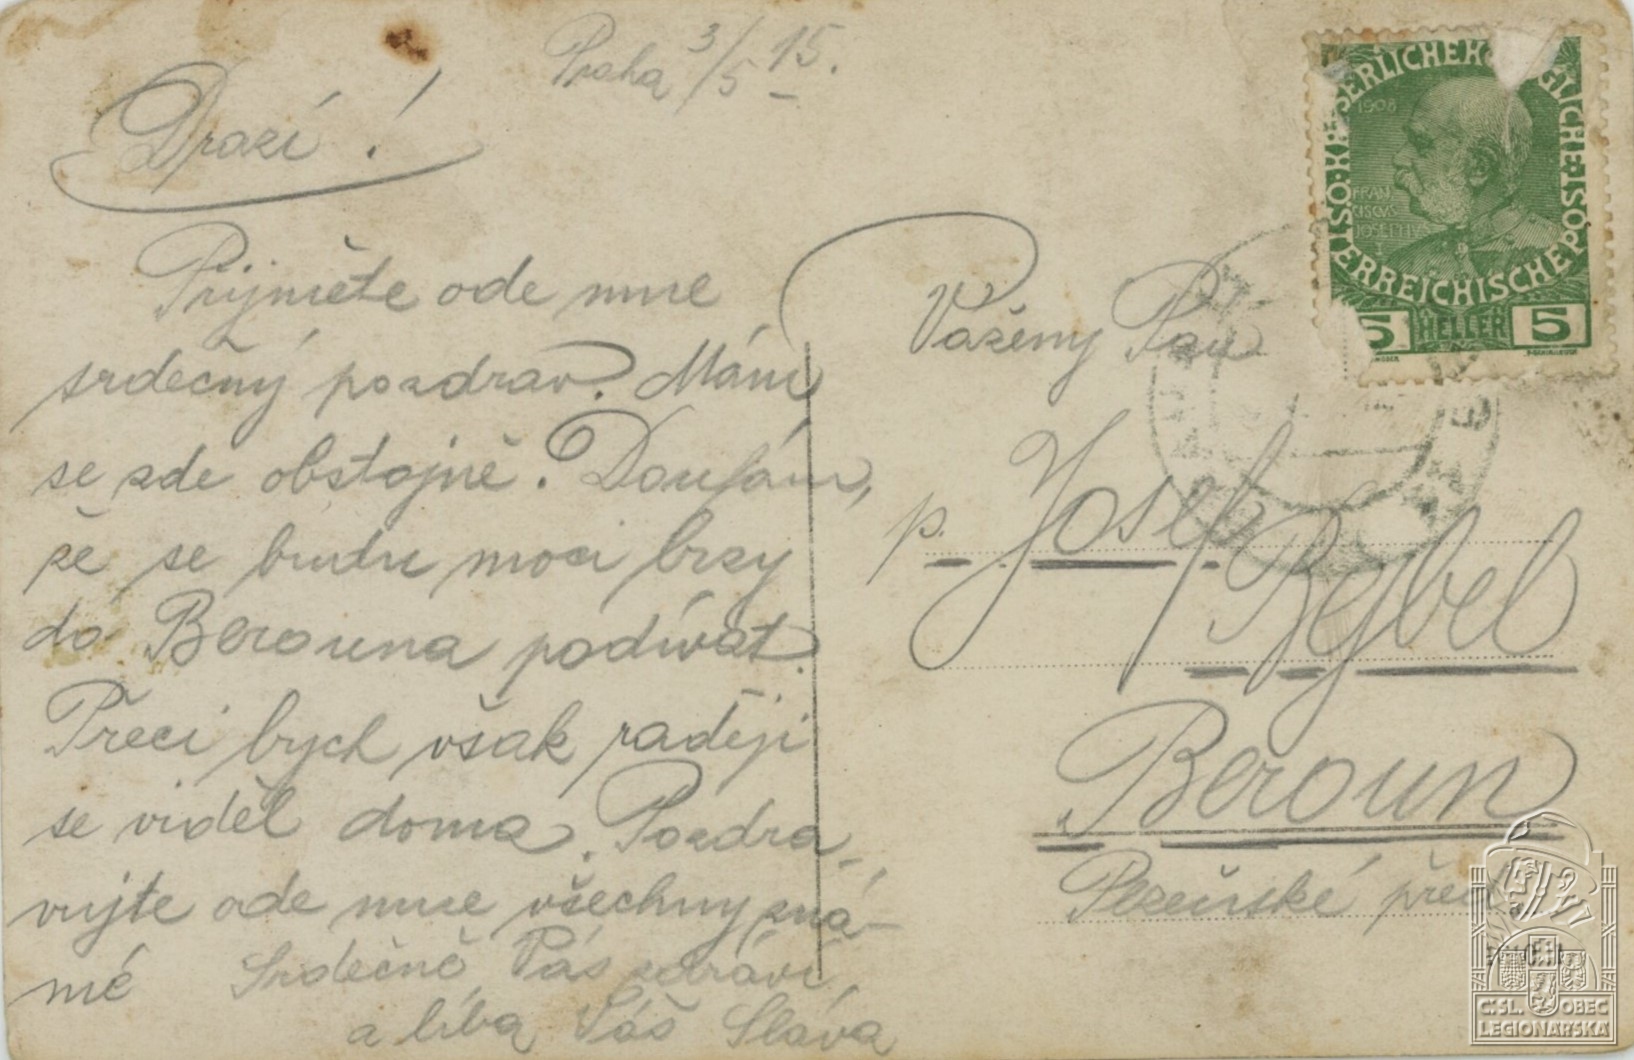 Praha 3/5 15.
Drazí!
Přijměte ode mne
srdečný pozdrav. Mám
se zde obstojně. Doufám,
že se budu moci brzy
do Berouna podívat.
Přeci bych však raději
se viděl doma. Pozdra-
vujte ode mne všechny zná-
mé Srdečně Vás zdraví
a líbá Váš Sláva
Vážený Pán
p. Josef
Rejbel
Beroun
Plzeňské před.
KAISERLICHE KÖNIGLICHE
ÖSTERREICHISCHE POST
1908
FRAN
CISCVS
IOSEPHVS
I
5 HELLER 5
ČSL. OBEC
LEGIONÁŘSKÁ